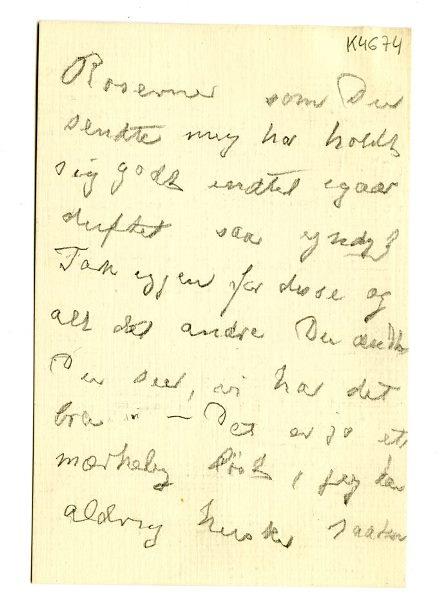 K4674
Roserner som Du
sendte mig har holdt
sig godt indtil igaar
duftet saa
Tak igjen for disse og
alt det andre Du sendte
Du seer, vi har det
bra — Det er jo et
mærkelig jeg kan
aldrig huske